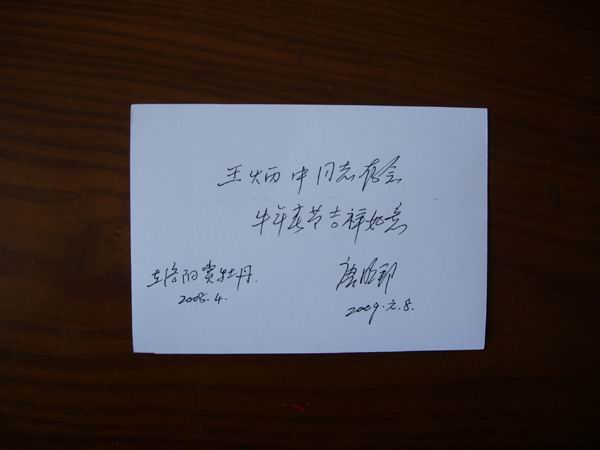 王炳中同志存念
牛年春节吉祥如意
在洛阳赏牡丹.
2008.4.
唐明邦
2009.元.8.